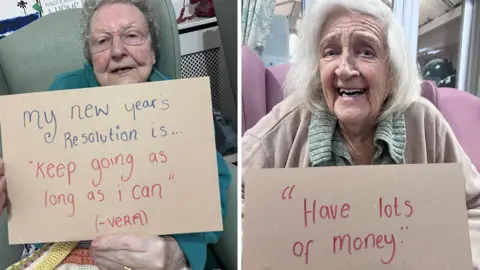 my new year's
Resolution is...
"Keep going as
long as i can"
(-VERA)
"Have lots
of money"